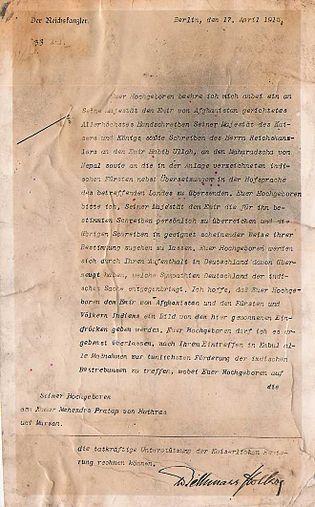 Der Reichskanzler.
Berlin, den 17. April 1915.
Euer Hochgeboren beehre ich mich anbei ein an
Seine Majestät den Emir von Afghanistan gerichtetes
Allerhöchstes Handschreiben Seiner Majestät des Kai-
sers und Königs sowie Schreiben des Herrn Reichskanz-
lers an den Emir Habib Ullah, an den Maharadscha von
Nepal sowie an die in der Anlage verzeichneten indi-
schen Fürsten nebst Übersetzungen in der Hofsprache
des betreffenden Landes zu übersenden. Euer Hochgeboren
bitte ich, Seiner Majestät dem Emir die für ihn be-
stimmten Schreiben persönlich zu überreichen und die
übrigen Schreiben in geeignet scheinender Weise ihrer
Bestimmung zugehen zu lassen. Euer Hochgeboren werden
sich durch Ihren Aufenthalt in Deutschland davon über-
zeugt haben, welche Sympathien Deutschland der indi-
schen Sache entgegenbringt. Ich hoffe, daß Euer Hochge-
boren dem Emir von Afghanistan und den Fürsten und
Völkern Indiens ein Bild von den hier gewonnenen Ein-
drücken geben werden. Euer Hochgeboren darf ich es er-
gebenst überlassen, nach Ihrem Eintreffen in Kabul al-
le Maßnahmen zur tunlichsten Förderung der indischen
Bestrebungen zu treffen, wobei Euer Hochgeboren auf
die
Seiner Hochgeboren
dem Kumar Mahendra Pratap von Hathras
und Mursan.
die tatkräftige Unterstützung der Kaiserlichen Regie-
rung rechnen können.